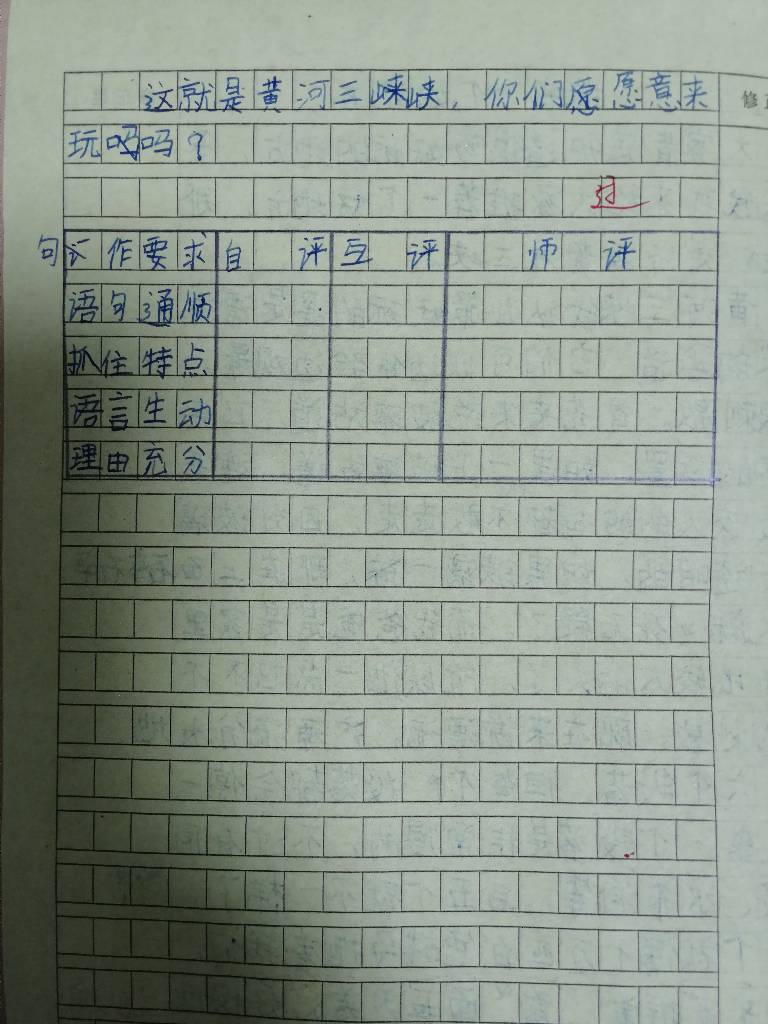 这就是黄河三崃峡，你们愿愿意来
修
玩吗吗？
过
作要求 自 评 互 评 师 评
语句通顺
抓住特点
语言生动
理由充分